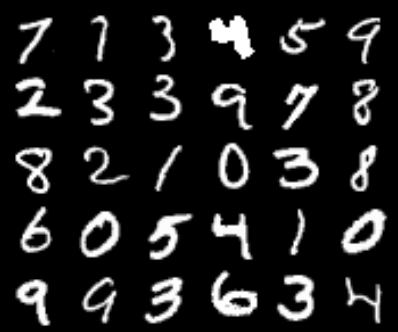 7 7 3 4 5 9
2 3 3 9 7 8
8 2 1 0 3 8
6 0 5 4 1 0
9 9 3 6 3 4